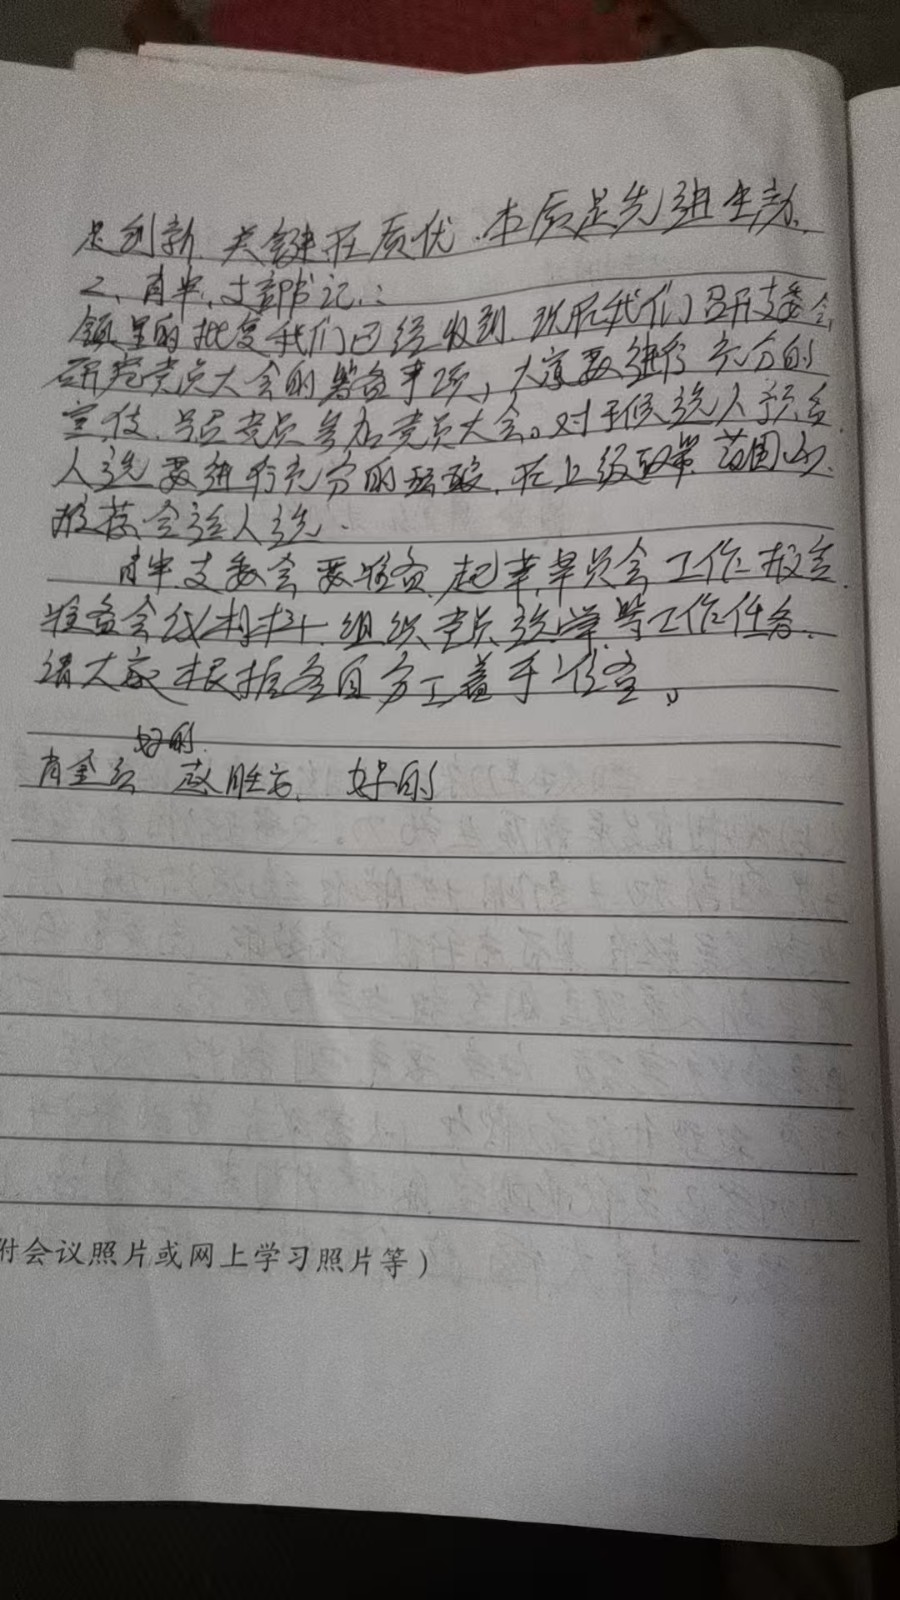 是创新，关键在质优，本质是先进生产
2、肖半，支部书记：
镇里的批复我们已经收到，现在我们召开支委会，
研究党员大会的筹备事项，大家要进行充分的
宣传，号召党员参加党员大会。对于候选人预备
人选要进行充分的酝酿，在上级
推荐合适人选。
肖半，支委会要准备，起草，党员会工作报告，
准备会议材料，组织党员选举等工作任务，
请大家根据各自分工着手准备。
好的
肖金云 赵胜方，好的
附会议照片或网上学习照片等）